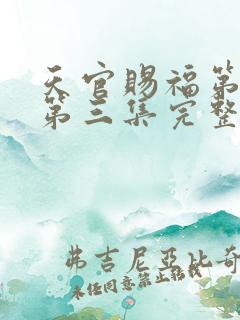 天官赐福第
第三集完整
弗吉尼亚比奇
未经同意禁止转载